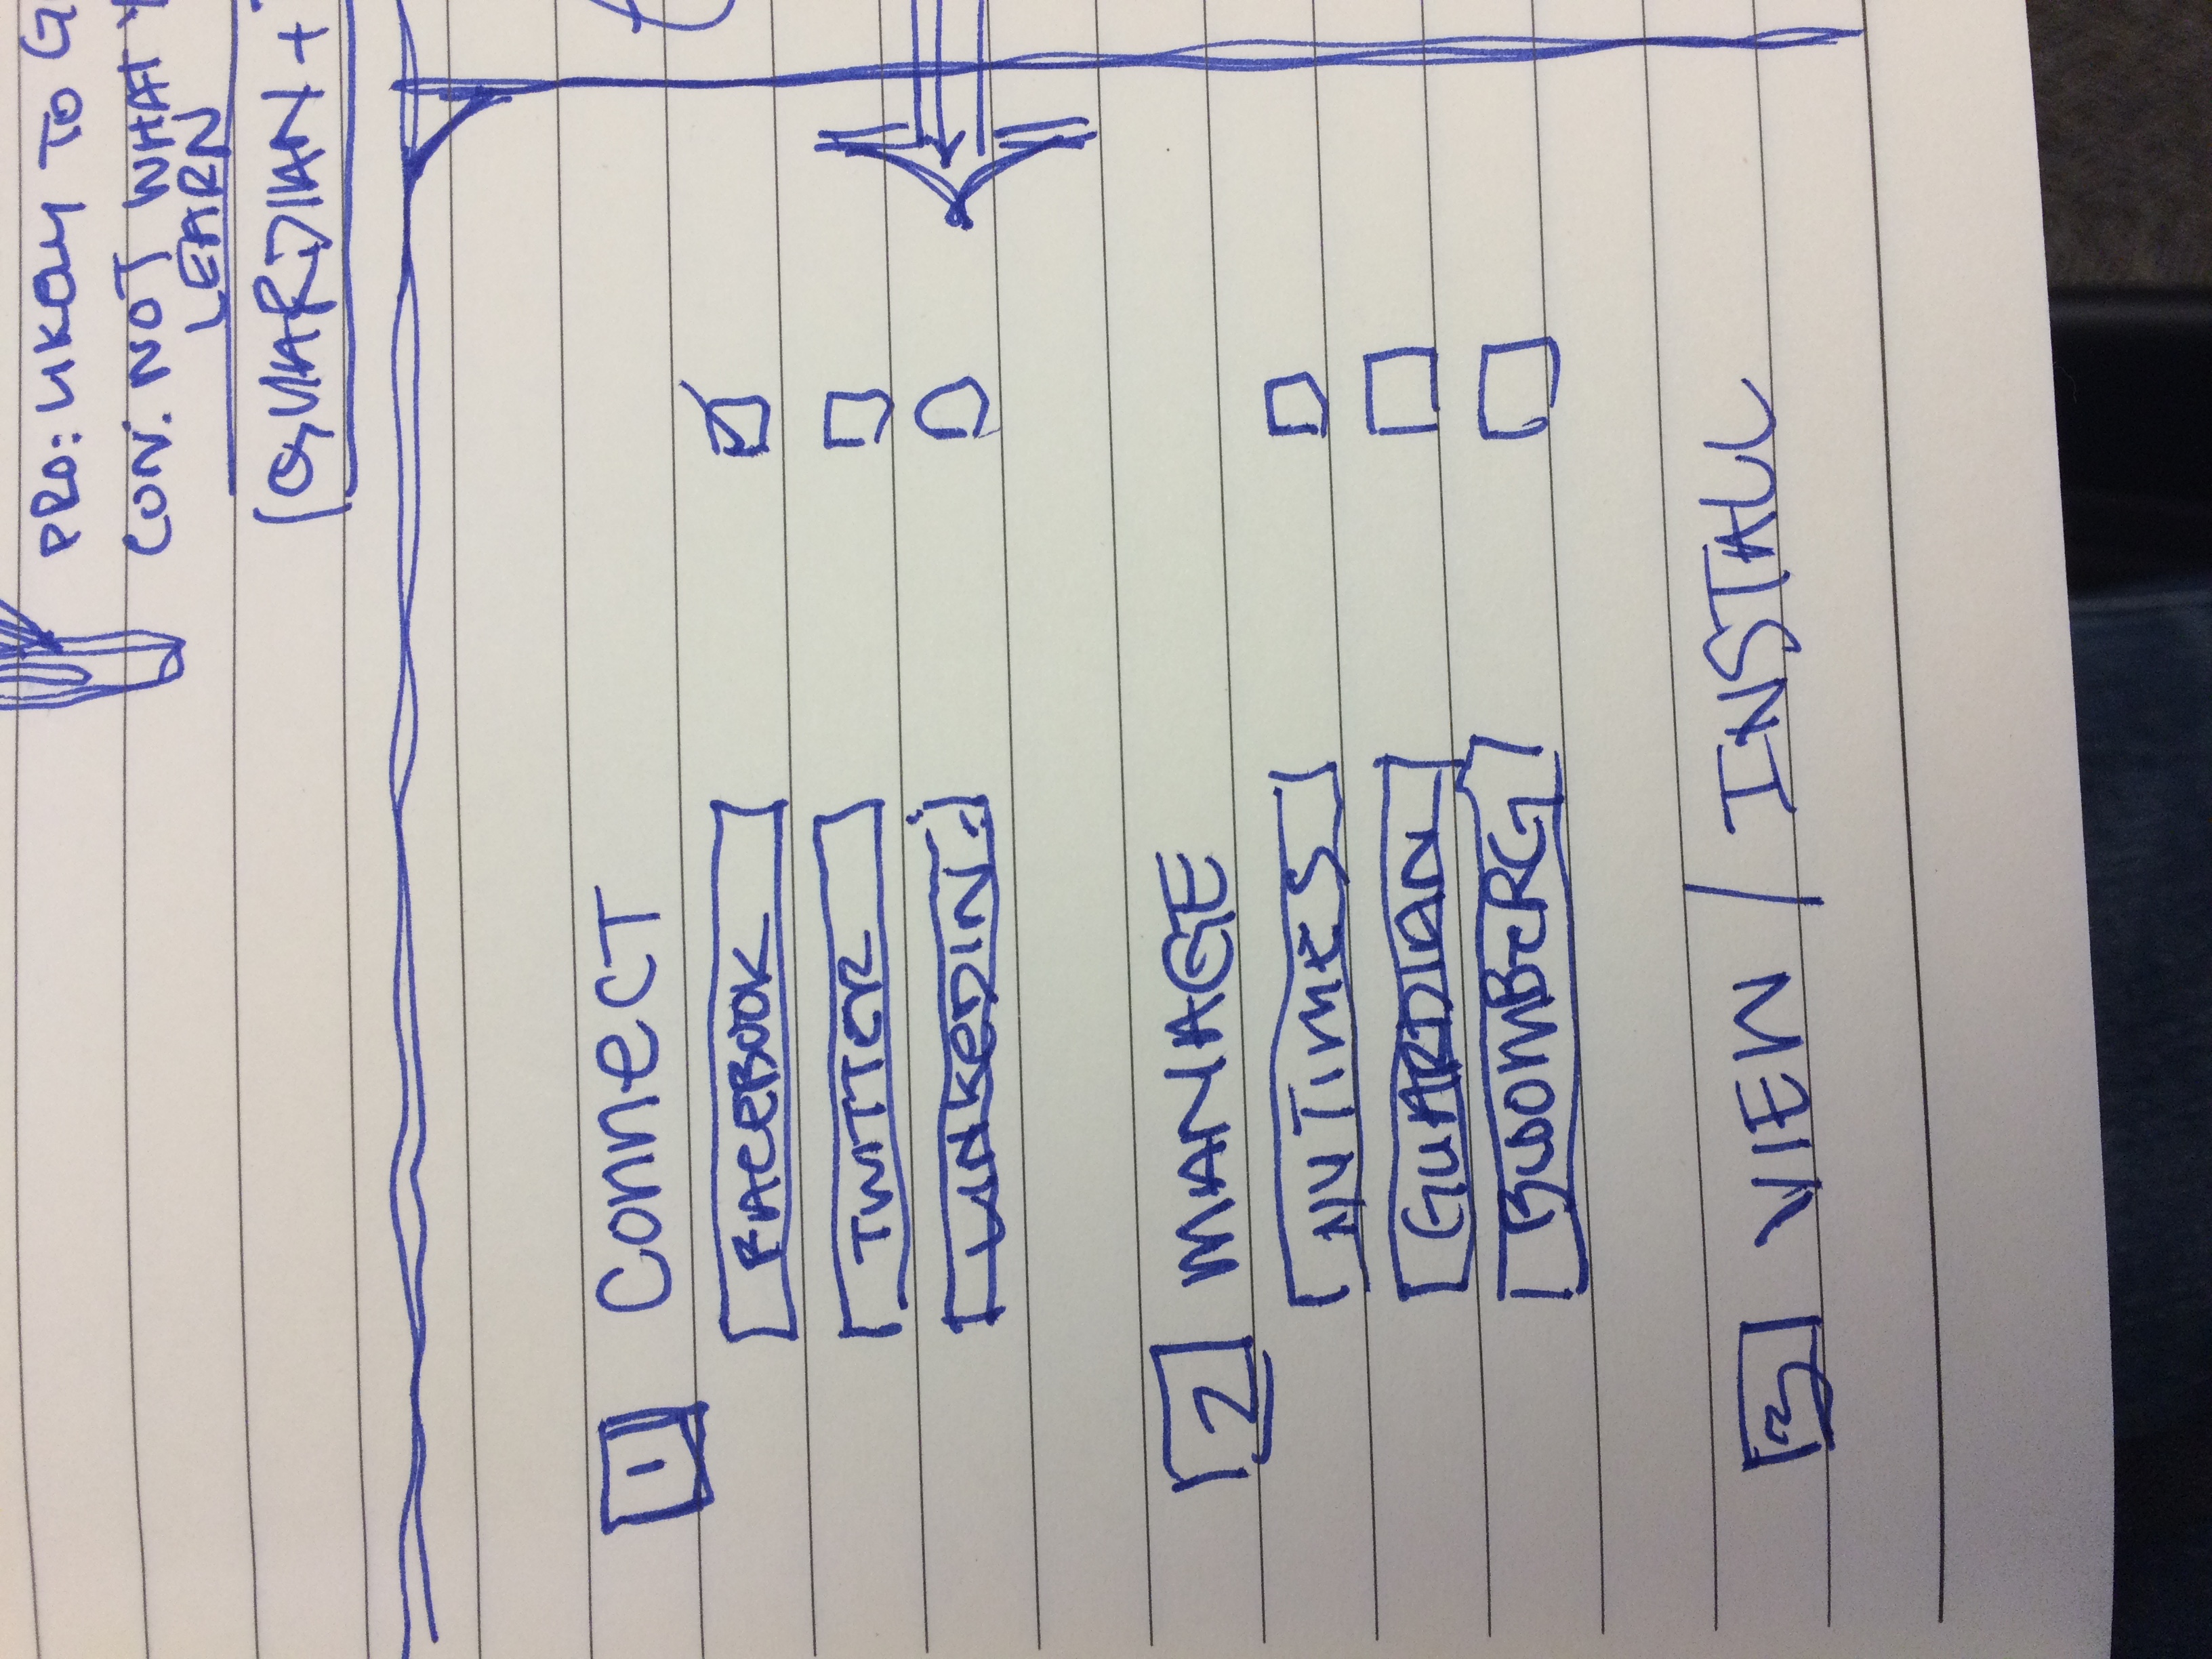 PRO: LIKELY TO G
CON: NOT WHAT Y
LEARN
(GUARDIAN +
1 CONNECT
FACEBOOK
TWITTER
LINKEDIN
2 MANAGE
NYTIMES
GUARDIAN
BLOOMBERG
3 VIEW / INSTALL